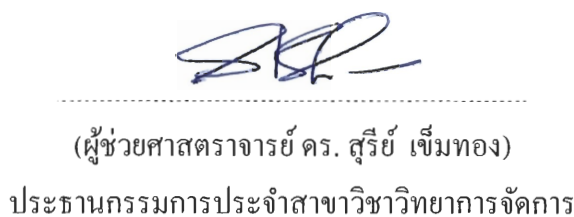 (ผู้ช่วยศาสตราจารย์ ดร. สุรีย์ เข็มทอง)
ประธานกรรมการประจำสาขาวิชาวิทยาการจัดการ